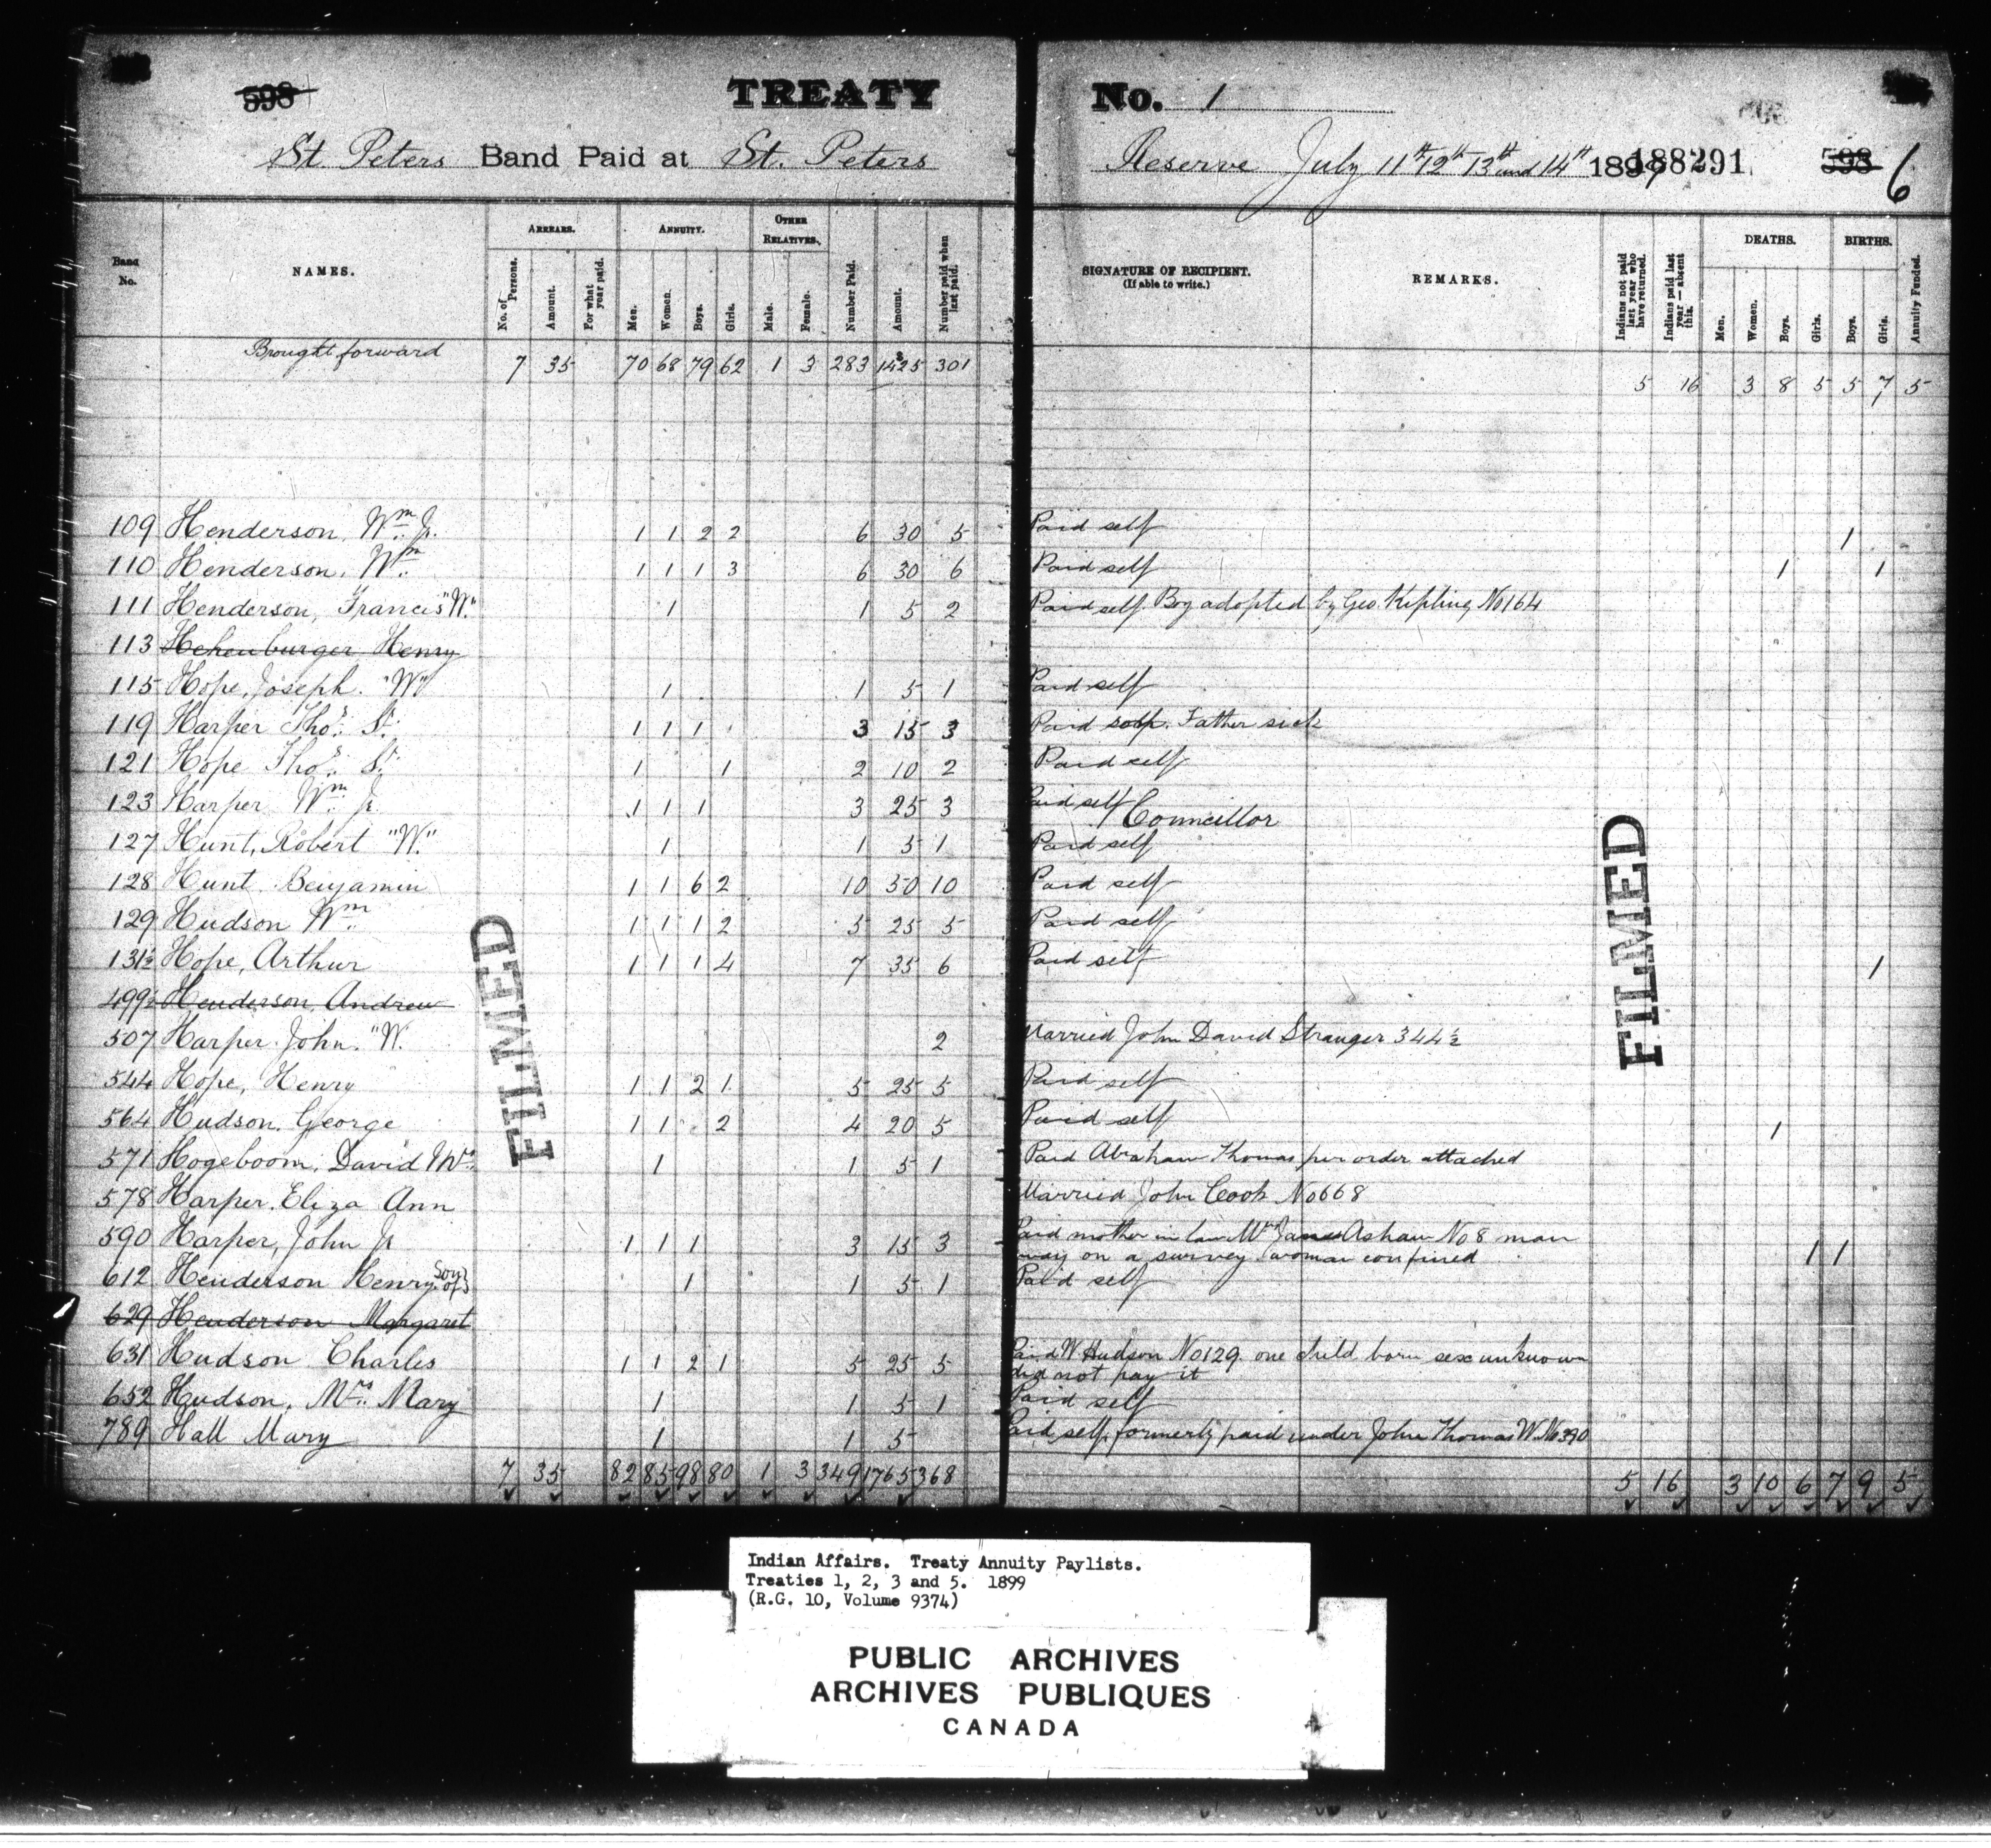 598 TREATY No. 1
St. Peters Band Paid at St. Peters Reserve July 11th 12th 13th and 14th 1899 188291 598 6
Band No. NAMES. ARREARS. No. of Persons. Amount. For what year paid. ANNUITY. Men. Women. Boys. Girls. OTHER RELATIVES. Male. Female. Number Paid. Amount. Number paid when last paid. SIGNATURE OF RECIPIENT. (If able to write.) REMARKS. Indians not paid last year who have returned. Indians paid last year—absent this. DEATHS. Men. Women. Boys. Girls. BIRTHS. Boys. Girls. Annuity Funded.
Brought forward 7 35 70 68 79 62 1 3 283 1435 301 5 16 3 8 5 5 7 5
109 Henderson, Wm Jr. 1 1 2 2 6 30 5 Paid self 1
110 Henderson, Wm 1 1 1 3 6 30 6 Paid self 1 1
111 Henderson, Francis "W." 1 1 5 2 Paid self. Boy adopted by Geo. Kipling No 164
113 Henry
115 Hope, Joseph. "W" 1 1 5 1 Paid self
119 Harper Thos Sr. 1 1 1 3 15 3 Paid self. Father sick
121 Hope Thos Sr. 1 1 2 10 2 Paid self
123 Harper Wm Jr. 1 1 1 3 25 3 Paid self Councillor
127 Hunt, Robert "W." 1 1 5 1 Paid self
128 Hunt Benjamin 1 1 6 2 10 50 10 Paid self
129 Hudson Wm 1 1 1 2 5 25 5 Paid self
131½ Hope, Arthur 1 1 1 4 7 35 6 Paid self 1
499½ Henderson, Andrew
507 Harper John. "W. 2 Married John David Stranger 344½
544 Hope, Henry 1 1 2 1 5 25 5 Paid self
564 Hudson, George 1 1 2 4 20 5 Paid self 1
571 Hogeboom, David Mrs. 1 1 5 1 Paid Abraham Thomas per order attached
578 Harper, Eliza Ann Married John Cook No 668
590 Harper, John Jr 1 1 1 3 15 3 Paid mother in law Mrs James Asham No 8 man
away on a survey woman confined 1 1
612 Henderson Henry Son of 1 1 5 1 Paid self
629 Henderson Margaret
631 Hudson Charles 1 1 2 1 5 25 5 Paid W Hudson No 129. one child born sex unknown
did not pay it
652 Hudson, Mrs. Mary 1 1 5 1 Paid self
789 Hall Mary 1 1 5 Paid self, formerly paid under John Thomas W. No 390
7 35 82 85 98 80 1 3 349 1765 368 5 16 3 10 6 7 9 5
FILMED
FILMED
Indian Affairs. Treaty Annuity Paylists.
Treaties 1, 2, 3 and 5. 1899
(R.G. 10, Volume 9374)
PUBLIC ARCHIVES
ARCHIVES PUBLIQUES
CANADA